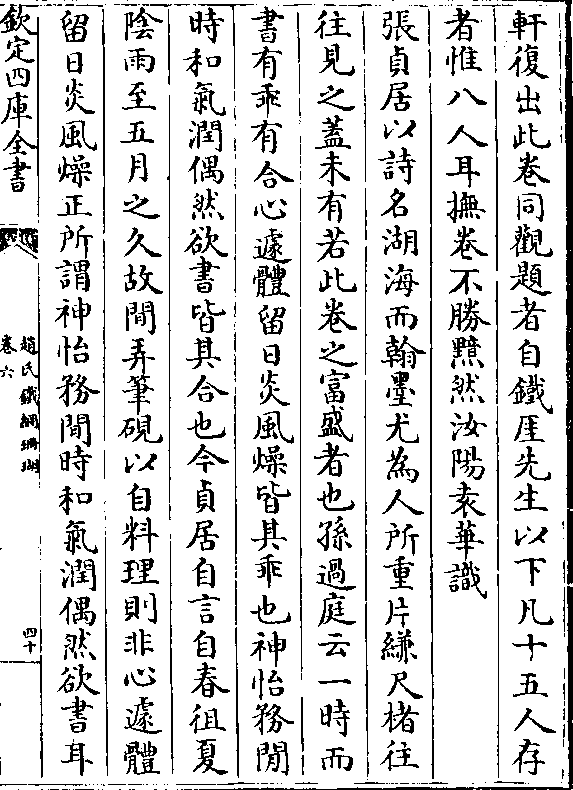 軒復出此卷同觀題者自鐵厓先生以下凡十五人存
者惟八人耳撫卷不勝黯然汝陽袁華識
張貞居以詩名湖海而翰墨尤為人所重片縑尺楮往
往見之蓋未有若此卷之富盛者也孫過庭云一時而
書有乖有合心遽體留日炎風燥皆其乖也神怡務閒
時和氣潤偶然欲書皆其合也今貞居自言自春徂夏
陰雨至五月之久故閒弄筆硯以自料理則非心遽體
留日炎風燥正所謂神怡務閒時和氣潤偶然欲書耳
欽定四庫全書
趙氏鐵網珊瑚
卷六
四十